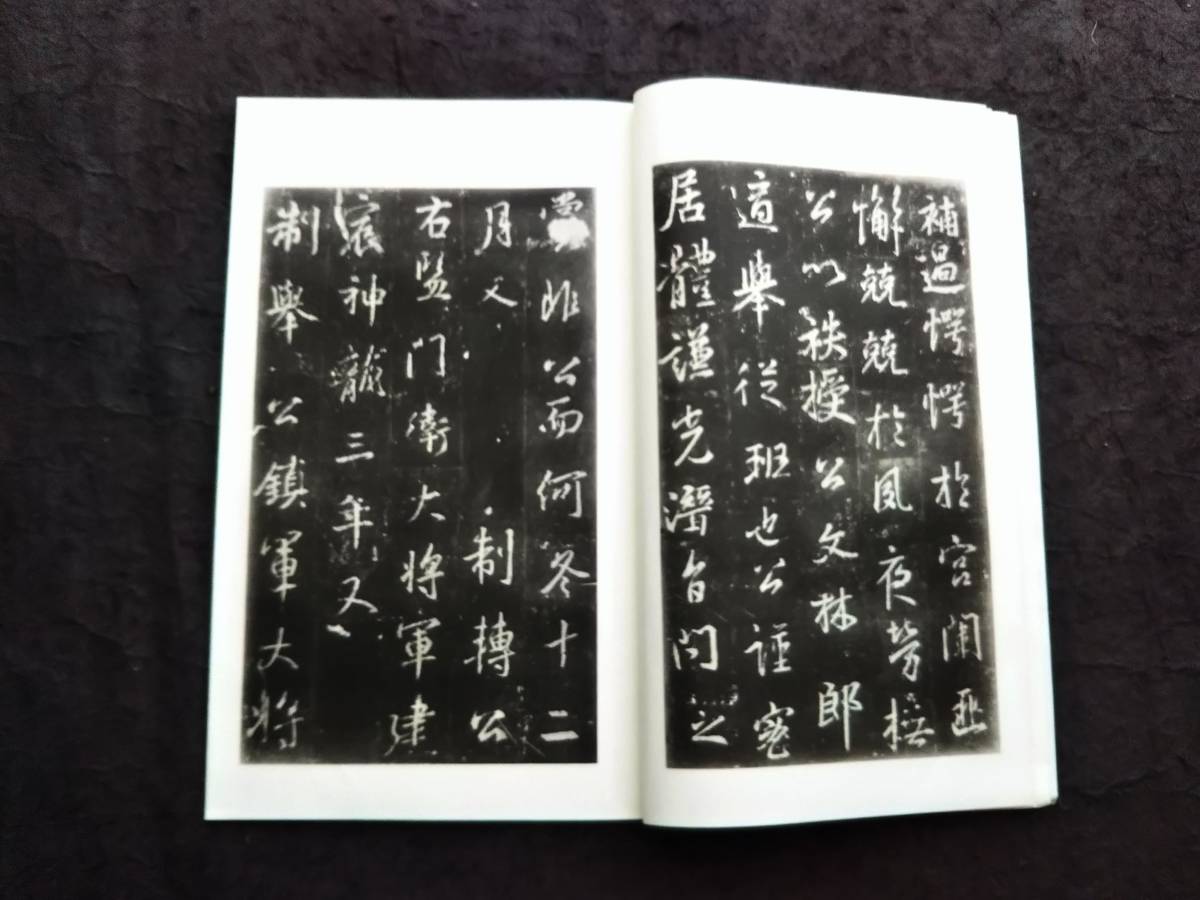 補過愕愕於宮闈匪
懈兢兢於夙夜勞
公以秩授公文林郎
適舉從班也公謹密
居體謙光潛旨問之
賞非公而何冬十二
月又制轉公
右監門衛大將軍建
宸神龍三年又
制舉公鎮軍大將